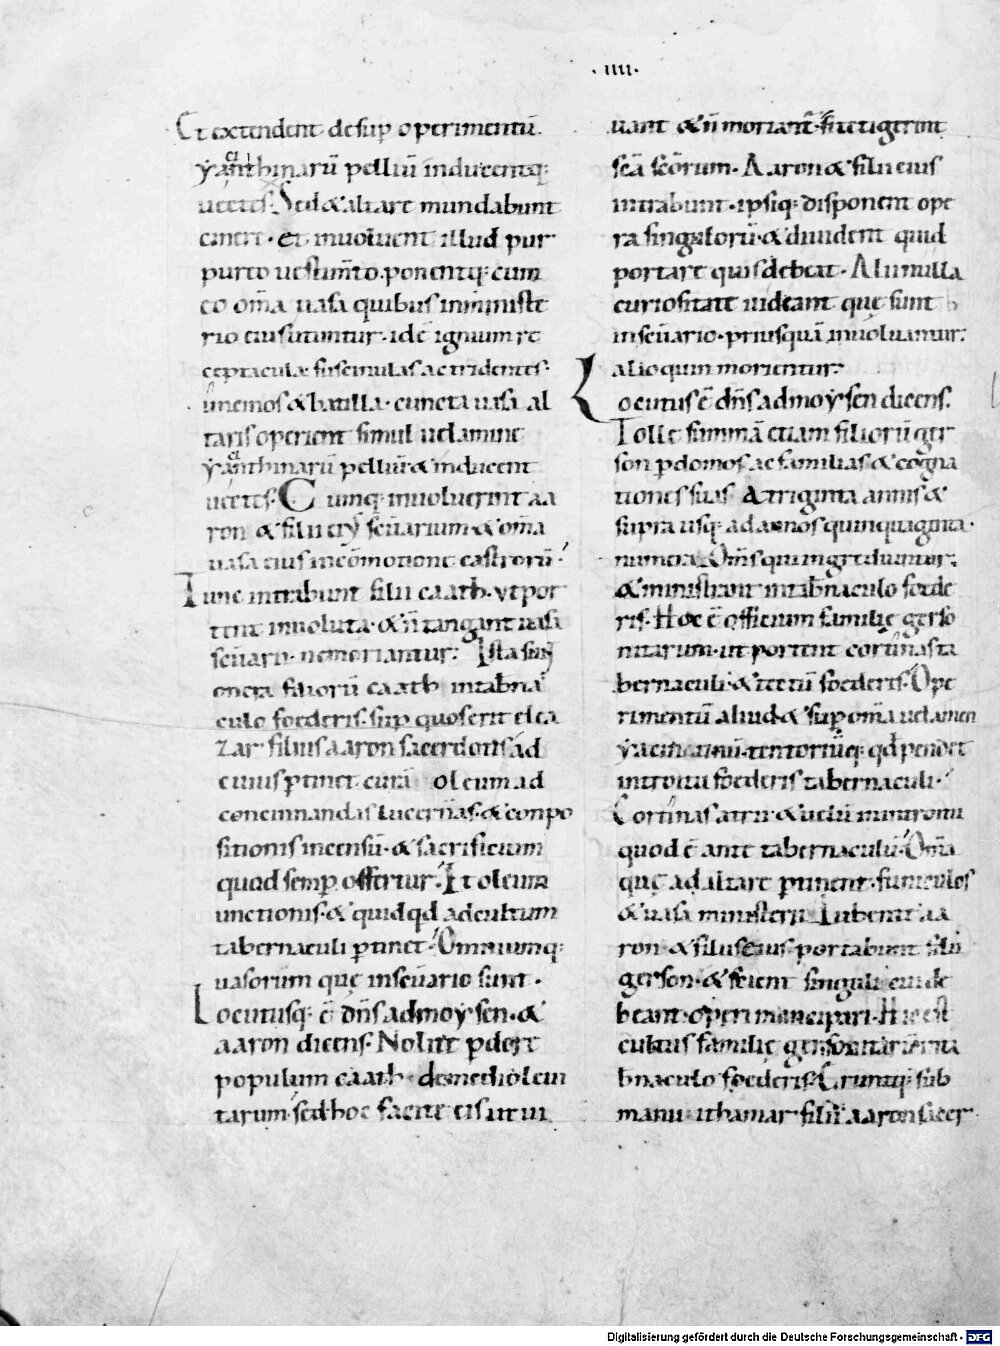 . IIII.
Et extendent desup operimentū
yanthinarū pelliū inducentq;
uectes. Sed & altare mundabunt
cinere. et inuoluent illud pur
pureo uestim̄to. ponentq; cum
eo om̄a uasa quibus in ministe
rio eius utuntur. idē ignium re
ceptacula. fuscinulas ac tridentes.
uncinos & batilla. cuncta uasa al
taris operient simul uelamine
yanthinarū pelliū & inducent
uectes. Cumq; inuoluerint aa
ron & filii ei sc̄uarium & om̄a
uasa eius in cōmotione castrorū.
Tunc intrabunt filii caath. vt por
tent inuoluta. & n̄ tangant uasa
sc̄uarii. ne moriantur. Ista sunt
onera filiorū caath in tab̄na
culo foederis. sup quos erit elea
zar filius aaron sacerdotis. ad
cuius ptinet curā oleum ad
concinnandas lucernas. & conpo
sitionis incensū. & sacrificium
quod semp offertur. Et oleum
unctionis. & quidqd ad cultum
tabernaculi ptinet. Omniumq;
uasorum quę in sc̄uario sunt.
Locutusq; ē dn̄s ad moysen. &
aaron dicens. Nolite pdere
populum caath. de medio leui
tarum. sed hoc facite eis ut ui
uant & n̄ moriant̄. si tetigerint
sc̄a sc̄orum. Aaron & filii eius
intrabunt. ipsiq; disponent ope
ra singulorū. & diuident quid
portare quis debeat. Alii nulla
curiositate uideant quę sunt
in sc̄uario. priusquā inuoluantur.
alioquin morientur.
Locutus ē dn̄s ad moysen dicens.
Tolle summā etiam filiorū ger
son p domos ac familias & cogna
tiones suas. A triginta annis &
supra usq; ad annos quinquaginta.
numera. Om̄s qui ingrediuntur.
& ministrant in tab̄naculo foede
ris. Hoc ē officium familię gerso
nitarum. ut portent cortinas ta
bernaculi. & tectū foederis. Ope
rimentū aliud. & sup om̄a uelamen
yacinctinū. tentoriūq; qd pendet
introitu foederis tabernaculi.
Cortinas atrii. & uelū in introitu
quod ē ante tabernaculū. Om̄a
quę ad altare ptinent. funiculos
& uasa ministerii. Iubente aa
ron & filiis eius. portabunt filii
gerson. & scient singuli cui de
beant operi mancipari. Hic est
cultus familię gersonitarū in ta
b̄naculo foederis. Eruntq; sub
manu ithamar filii aaron sacer
Digitalisierung gefördert durch die Deutsche Forschungsgemeinschaft - DFG